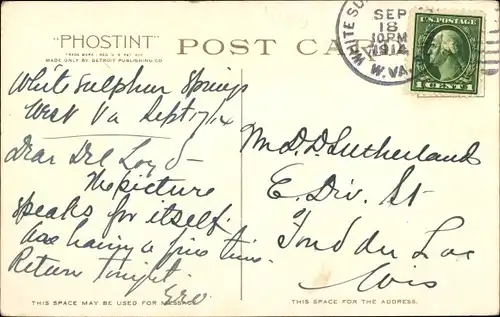 "PHOSTINT"
TRADE MARK
MADE ONLY BY DETROIT PUBLISHING CO.
POST CA
WHITE SU
SEP
18
10 PM
1914
W. VA.
U.S. POSTAGE
1 CENT 1
White Sulphur Springs
West Va Sept 17/14
Dear
The picture
speaks for itself.
having a fine time.
Return tonight.
Mr D. D. Sutherland
E. Div. St
Fond du Lac
Wis
THIS SPACE MAY BE USED FOR MESSAGE
THIS SPACE IS FOR THE ADDRESS.